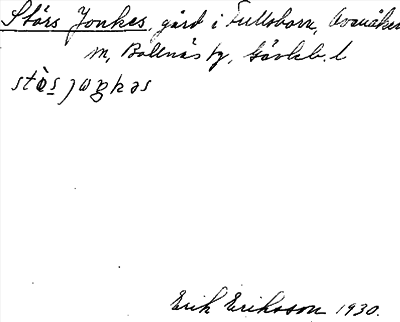 Störs Jonkes, gård i Fullsborn, Ovanåker
m, Bollnäs tg, Gävleb. l
Erik Eriksson 1930.